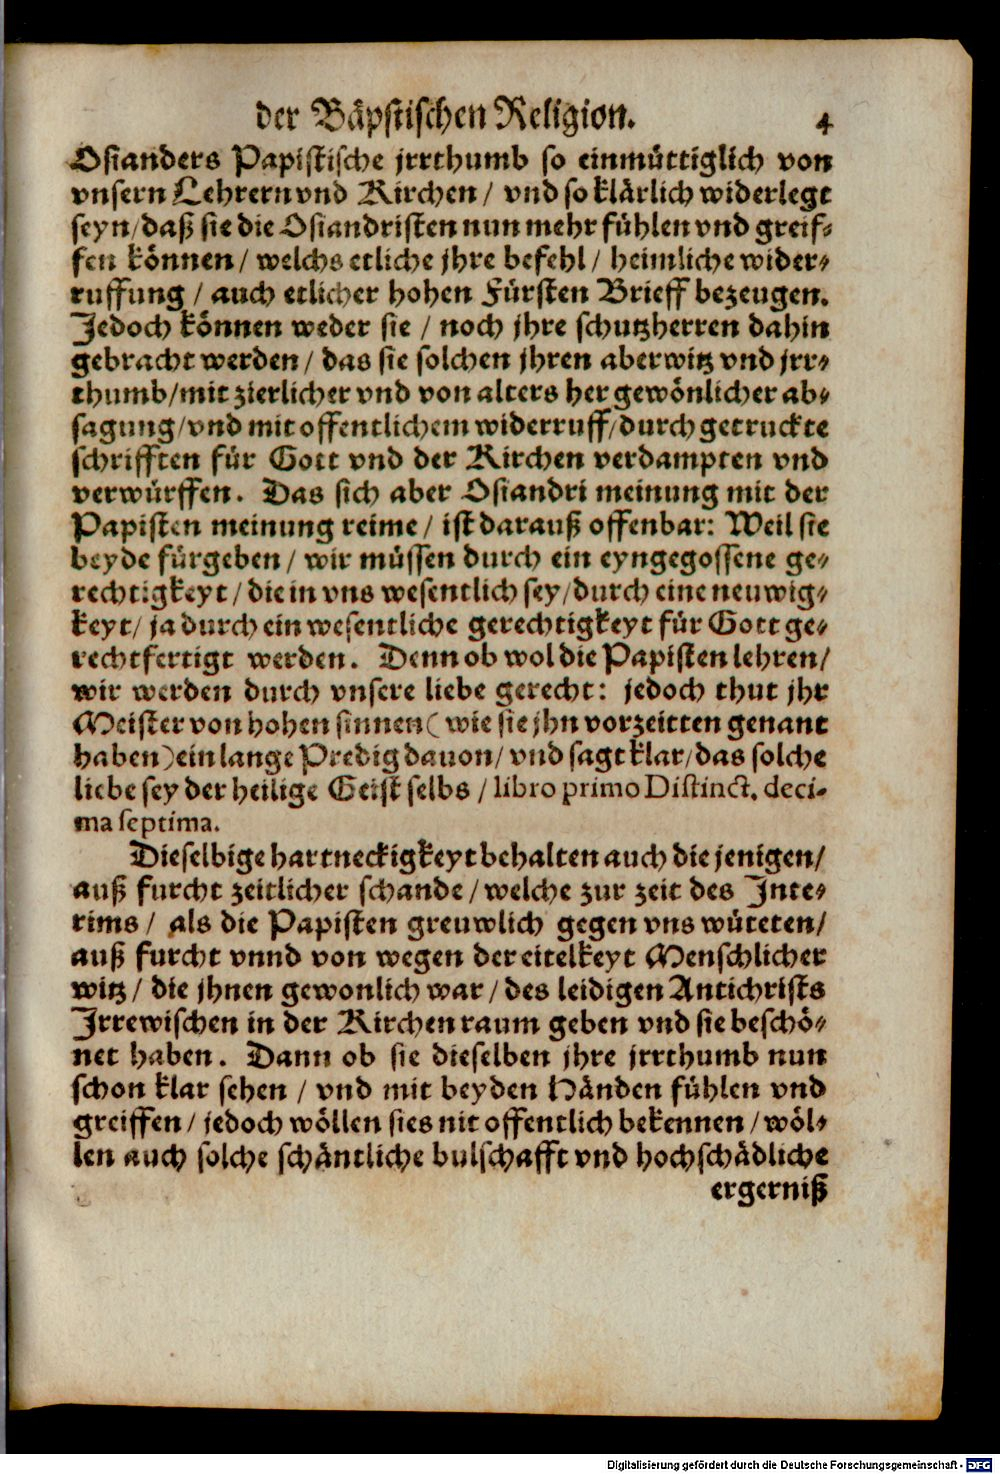 der Bäpstischen Religion. 4
Osianders Papistische jrrthumb so einmüttiglich von
vnsern Lehrern vnd Kirchen / vnd so klärlich widerlegt
seyn / daß sie die Osiandristen nun mehr fühlen vnd greif-
fen können / welchs etliche jhre befehl / heimliche wider-
ruffung / auch etlicher hohen Fürsten Brieff bezeugen.
Jedoch können weder sie / noch jhre schutzherren dahin
gebracht werden / das sie solchen jhren aberwitz vnd jrr-
thumb / mit zierlicher vnd von alters her gewönlicher ab-
sagung / vnd mit offentlichem widerruff / durch getruckte
schrifften für Gott vnd der Kirchen verdampten vnd
verwürffen. Das sich aber Osiandri meinung mit der
Papisten meinung reime / ist darauß offenbar: Weil sie
beyde fürgeben / wir müssen durch ein eyngegossene ge-
rechtigkeyt / die in vns wesentlich sey / durch eine neuwig-
keyt / ja durch ein wesentliche gerechtigkeyt für Gott ge-
rechtfertigt werden. Denn ob wol die Papisten lehren /
wir werden durch vnsere liebe gerecht: jedoch thut jhr
Meister von hohen sinnen ( wie sie jhn vorzeitten genant
haben ) ein lange Predig dauon / vnd sagt klar / das solche
liebe sey der heilige Geist selbs / libro primo Distinct. deci-
ma septima.
Dieselbige hartneckigkeyt behalten auch die jenigen /
auß furcht zeitlicher schande / welche zur zeit des Inte-
rims / als die Papisten greuwlich gegen vns wüteten /
auß furcht vnnd von wegen der eitelkeyt Menschlicher
witz / die jhnen gewonlich war / des leidigen Antichrists
Irrewischen in der Kirchen raum geben vnd sie beschö-
net haben. Dann ob sie dieselben jhre jrrthumb nun
schon klar sehen / vnd mit beyden Händen fühlen vnd
greiffen / jedoch wöllen sies nit offentlich bekennen / wöl-
len auch solche schäntliche bulschafft vnd hochschädliche
ergerniß
Digitalisierung gefördert durch die Deutsche Forschungsgemeinschaft - DFG